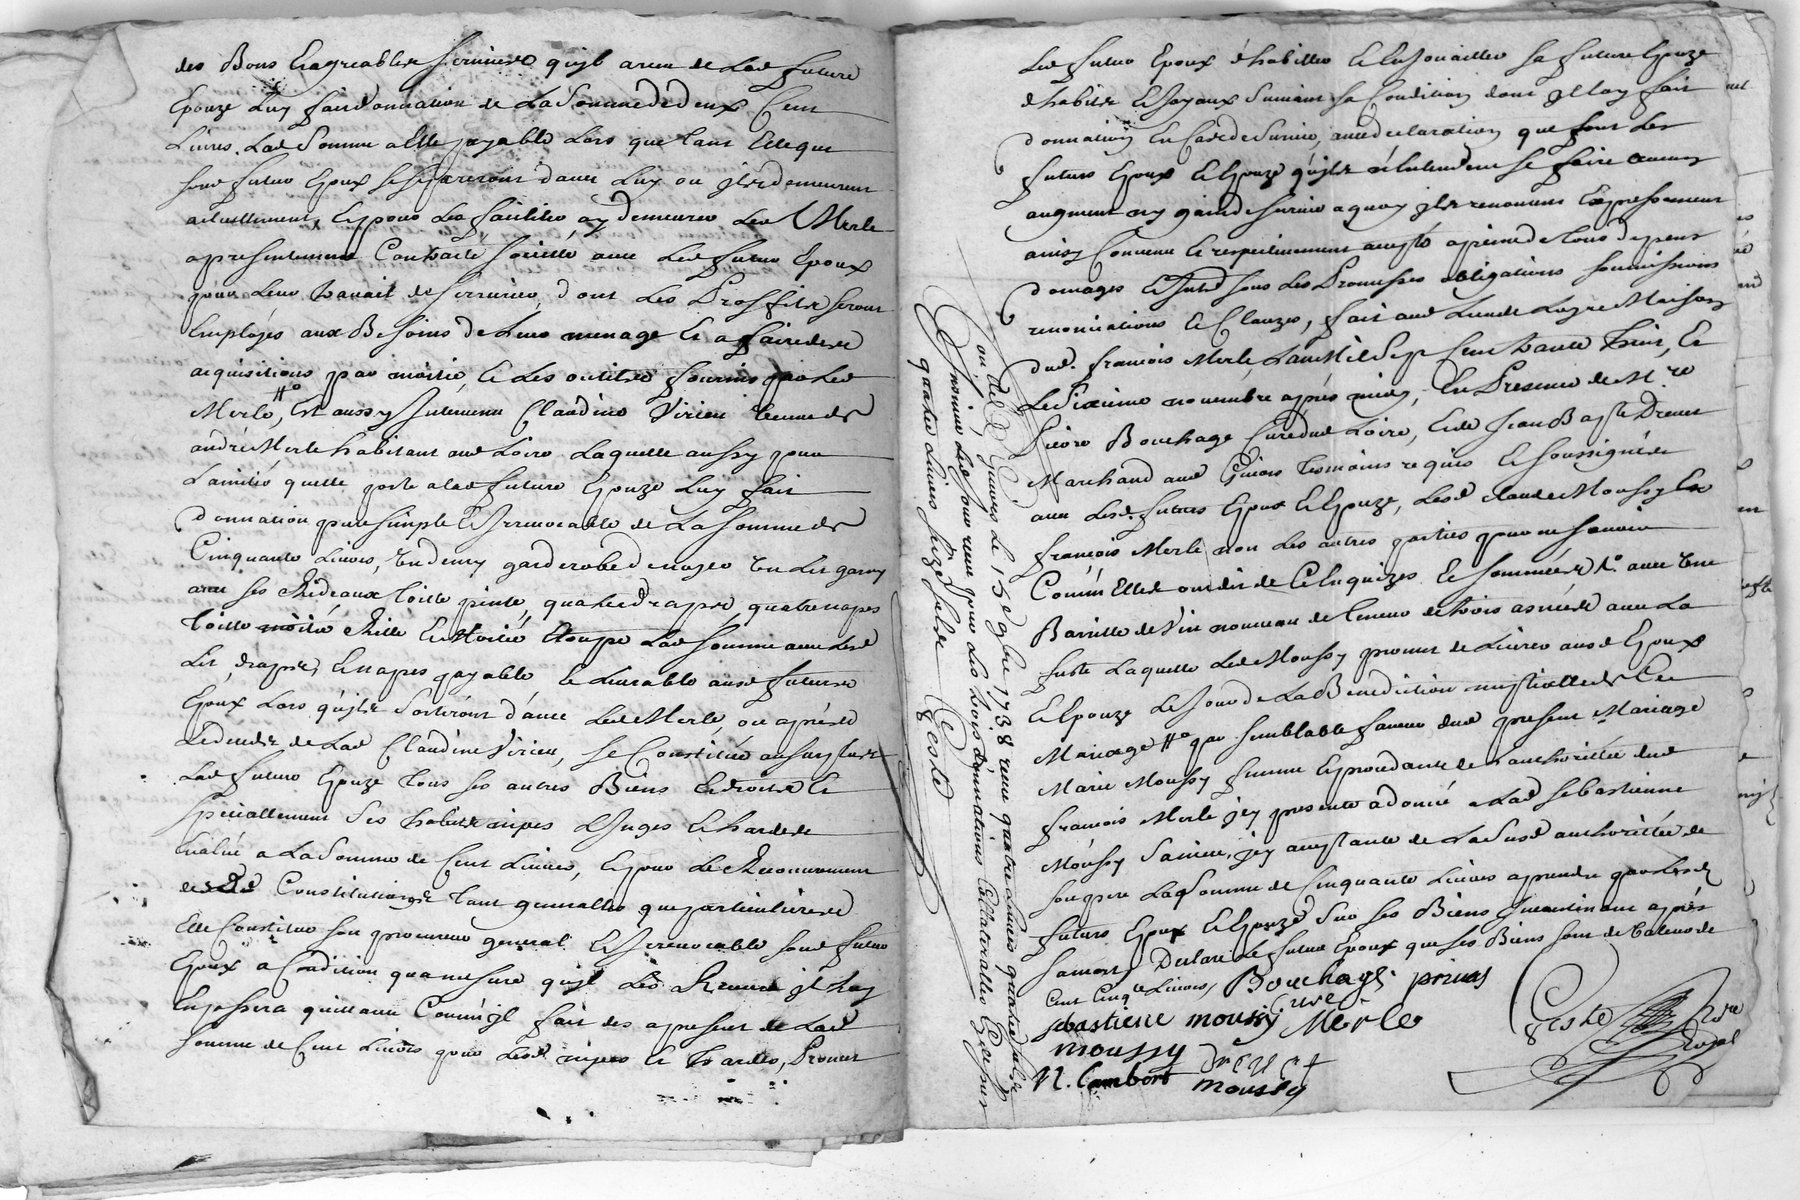 des Bons et agreables services qu'jl a reçu de Lad future
Epouze Luy fait donnation de La Somme de deux Cent
Livres. Lad Somme a Elle payable Lors que tant Elle que
sond futur Epoux se separeront d'avec Luy ou jls demeurent
actuellement, Et pour Les faciliter a y demeurer Led Merle
a presentement Contracté société avec Led futur Epoux
pour Leur travail de serrurier, dont Les Proffits seront
Employés aux Besoins de Leur menage Et a faire des
acquisitions par moitié, Et Les outils fournis par Led
Merle, Est aussy Intervenue Claudine Virieu veuve de
andré Merle habitant aud Loire Laquelle aussy pour
L'amitié quelle porte a lad future Epouze Luy fait
Donnation pure simple Et Irrevocable de La Somme de
Cinquante Livres, Un demy garderobe de noyer Un Lit garny
avec ses Rideaux toille peinte, quatre draps, quatre napes
toille moitié Ritte Et Moitié Etoupe Lad somme avec Led
Lit, draps, Et napes payable Et Livrable ausd futurs
Epoux Lors qu'jls sortiront d'avec Led Merle, ou après Le
deceds de Lad Claudine Virieu, se Constitue au surplus
Lad future Epouze tous ses autres Biens Et droits Et
speciallement ses habits nipes Linges Et hardes
Evalué a La Somme de Cent Livres, Et pour Le Recouvrement
desd Constitutions tant generalles que particulieres
Elle Constitue son procureur general Et Irrevocable sond futur
Epoux a Condition qu'a mesure qu'jl Les Recevra jl Luy
En passera quittance Comm'jl fait des a present de Lad
somme de Cent Livres pour Lesd nipes Et hardes, Promet
Led futur Epoux d'habiller Et Enjoailler sa future Epouze
d'habits Et Joyaux Suivant sa Condition dont jl Luy fait
donnation En Cas de Survie, avec declaration que font Les
futurs Epoux Et Epouze qu'jls n'Entendent se faire aucun
augment ny gain de Survie a quoy jls renoncent Expressement
ainsy Convenu Et respectivement accepté a peine de tous depens
domages Et Interets sous Les Promesses obligations soumissions
renonciations Et Clauzes, fait aud Lieu de Loyre Maison
dud. françois Merle, L'an Mil Sept Cent trente huit, Et
Le Sixieme novembre après midy, En Presence de Mre
Pierre Bouchage Curé dud Loire, Et de Jean Baptte Drevet
Marchand aud Givors temoins requis Et soussignés
avec Lesd. futurs Epoux Et Epouze, Lesd Claude Moussy Et
françois Merle non Les autres parties pour ne Scavoir
Comm Elles ont dit de Ce Enquizes Et sommées avec Une
Barrille de Vin nouveau de teneur de trois asnées avec La
futte Laquelle Led Moussy promet de Livrer ausd Epoux
Et Epouze Le Jour de La Benediction nuptialle Et
Mariage par semblable faveur dud present Mariage
Marie Moussy femme Et procedante de L'authorité dud
françois Merle jcy presente a donné a Lad sebastienne
Moussy Sa niece, jcy acceptante de La Susd authorité de
son pere La Somme de Cinquante Livres a prendre par Lesd
futurs Epoux Et Epouze Sur ses Biens Incontinant après
sa mort, Declare Le futur Epoux que ses Biens sont de Valeur de
Cent Cinqte Livres, Bouchage privas
Curé
sebastiene moussy Merle
moussy Drevet
N. Cambort moussy
Geste Nore
Royal
Con.llé a Givors Le 15e 9bre 1738 reçu quatre Livres quatre sols
Insinué Led jour reçu pour Les trois donnations Collateralles
quatre Livres seize sols Geste